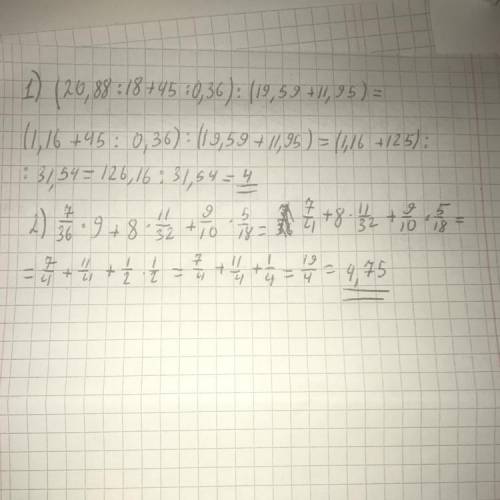 1) (20,88:18+45:0,36):(19,59+11,95)=
(1,16+45:0,36):(19,59+11,95)=(1,16+125):
:31,54=126,16:31,54=4
2) 7/36·9+8·11/32+9/10·5/18= 7/4+8·11/32+9/10·5/18=
=7/4+11/4+1/2·1/2=7/4+11/4+1/4=19/4=4,75